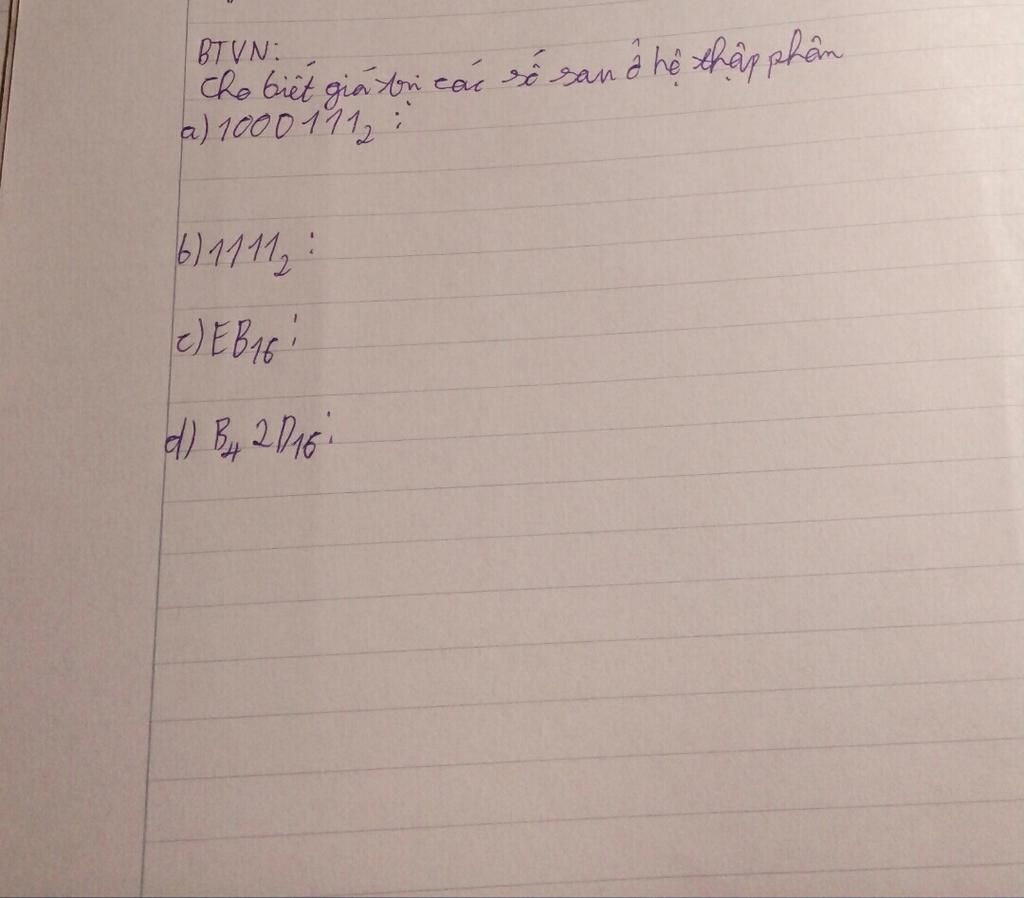 BTVN:
Cho biết giá trị các số sau ở hệ thập phân
a) 1000111₂ :
b) 1111₂ :
c) EB₁₆ :
d) B₄ 2D₁₆ :